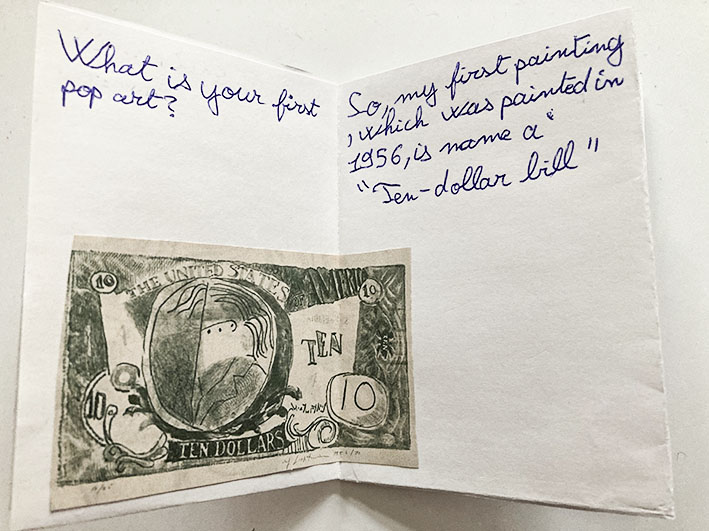 What is your first
pop art?
So, my first painting
, which was painted in
1956, is name a "
"Ten-dollar bill"
10
THE UNITED STATES
AMERI
10
TEN
10
10
TEN DOLLARS